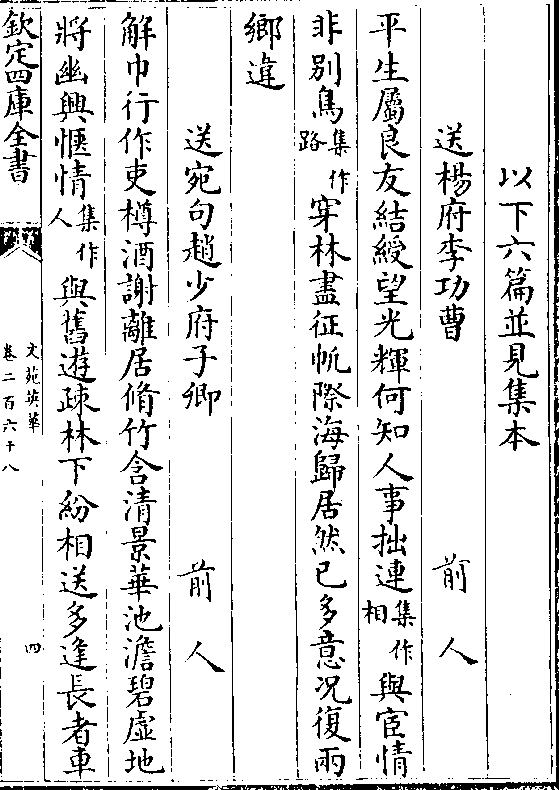 以下六篇並見集本
送楊府李功曹　前人
平生屬良友結綬望光輝何知人事拙連集作相與宦情
非別鳥集作路穿林盡征帆際海歸居然已多意况復兩
鄉違
送宛句趙少府子卿　前人
解巾行作吏樽酒謝離居脩竹含清景華池澹碧虛地
將幽興愜情集作人與舊遊疎林下紛相送多逢長者車
欽定四庫全書
文苑英華
卷二百六十八
四